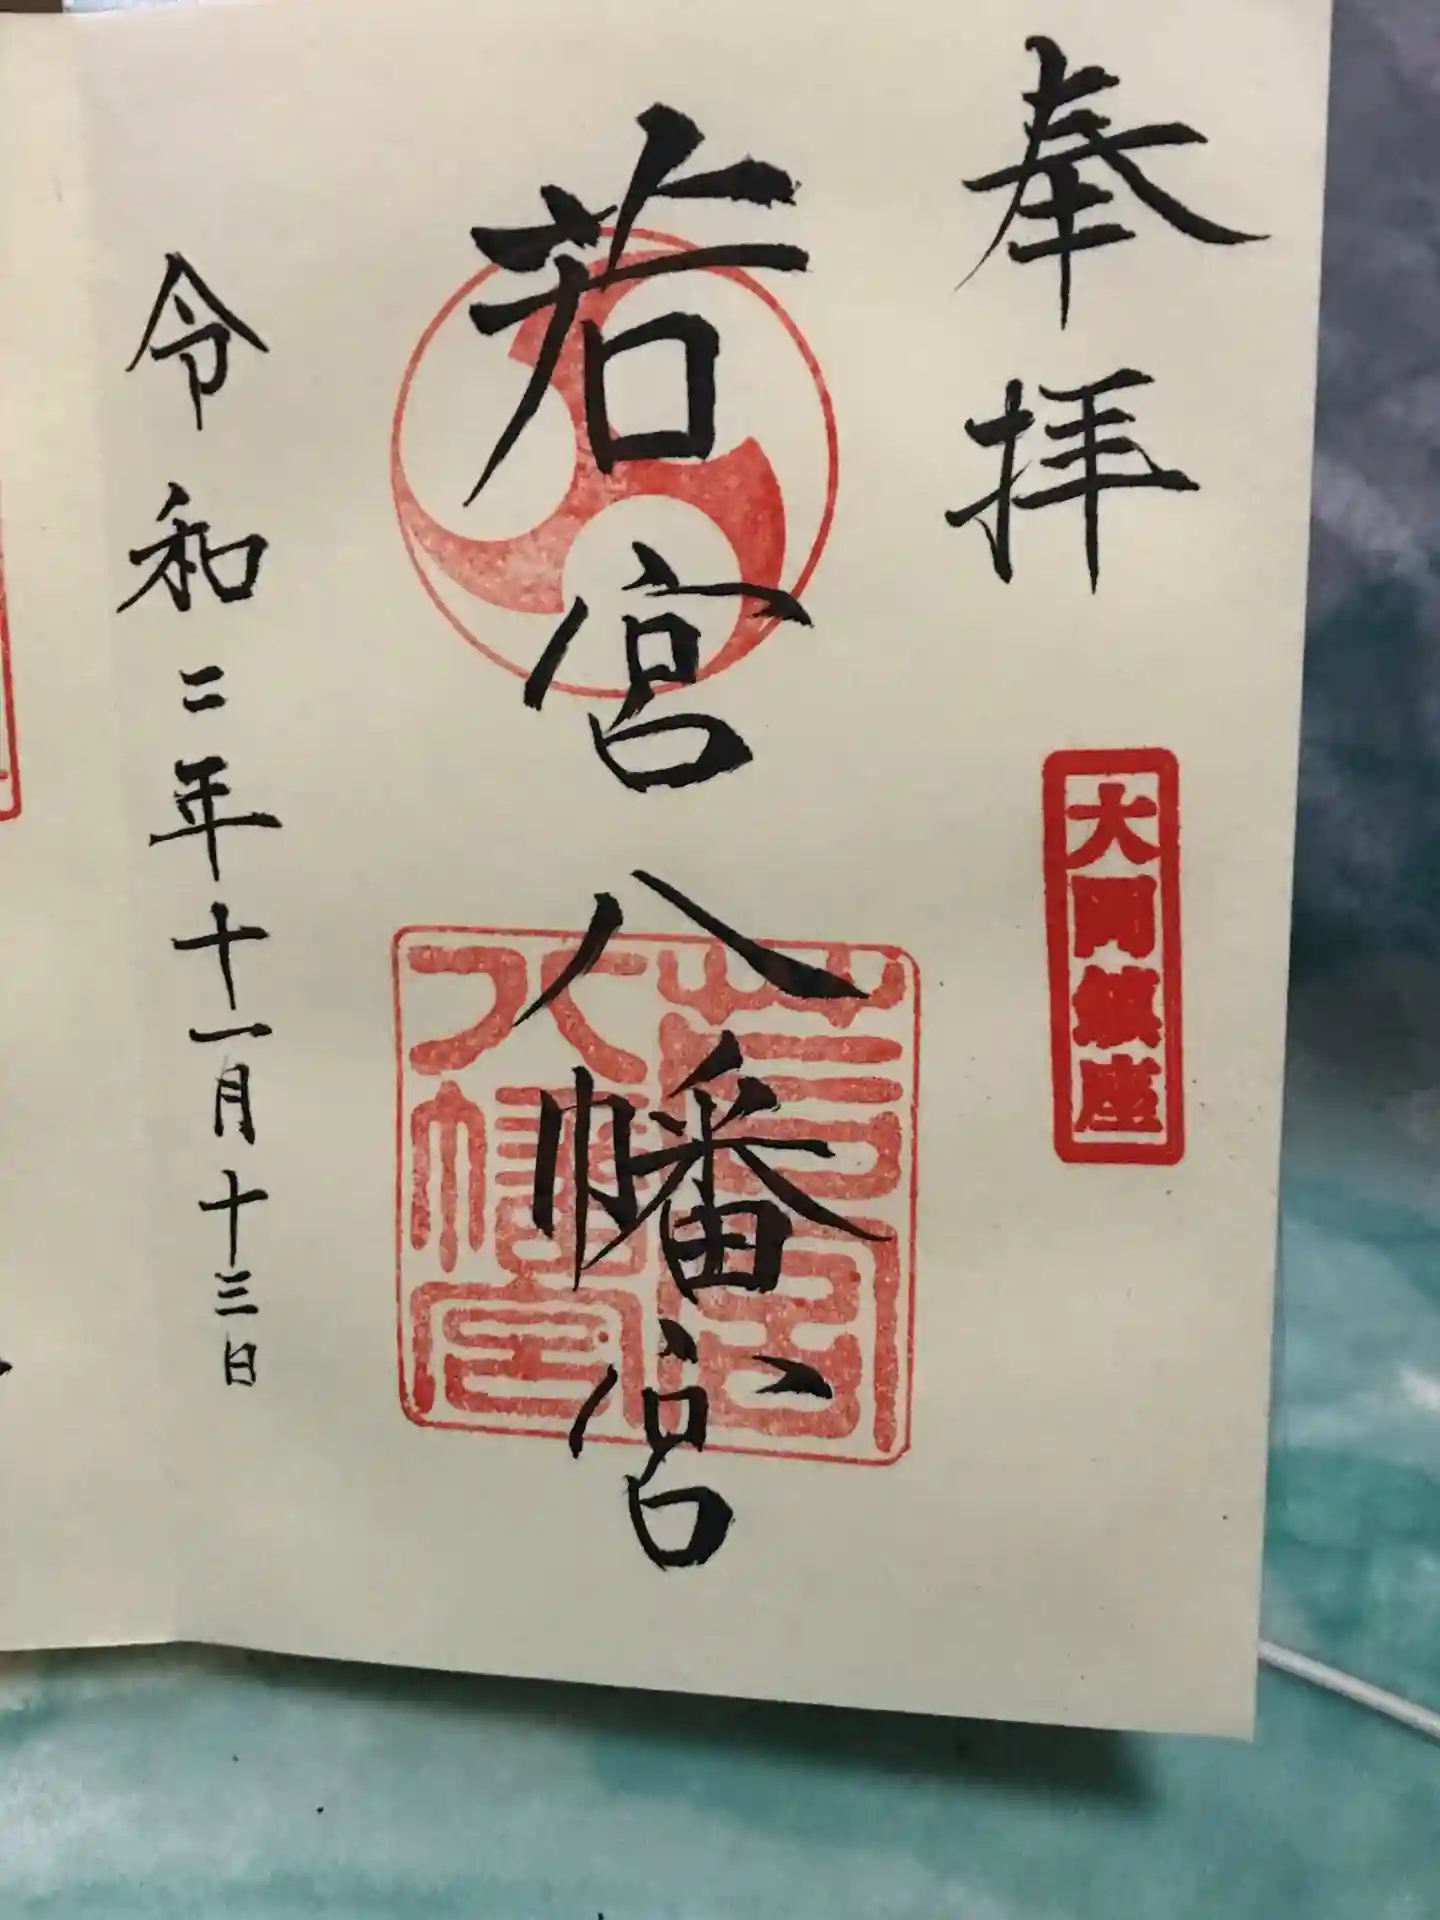 奉拝
大岡鎮座
若宮八幡宮
若宮八幡宮
令和二年十一月十三日